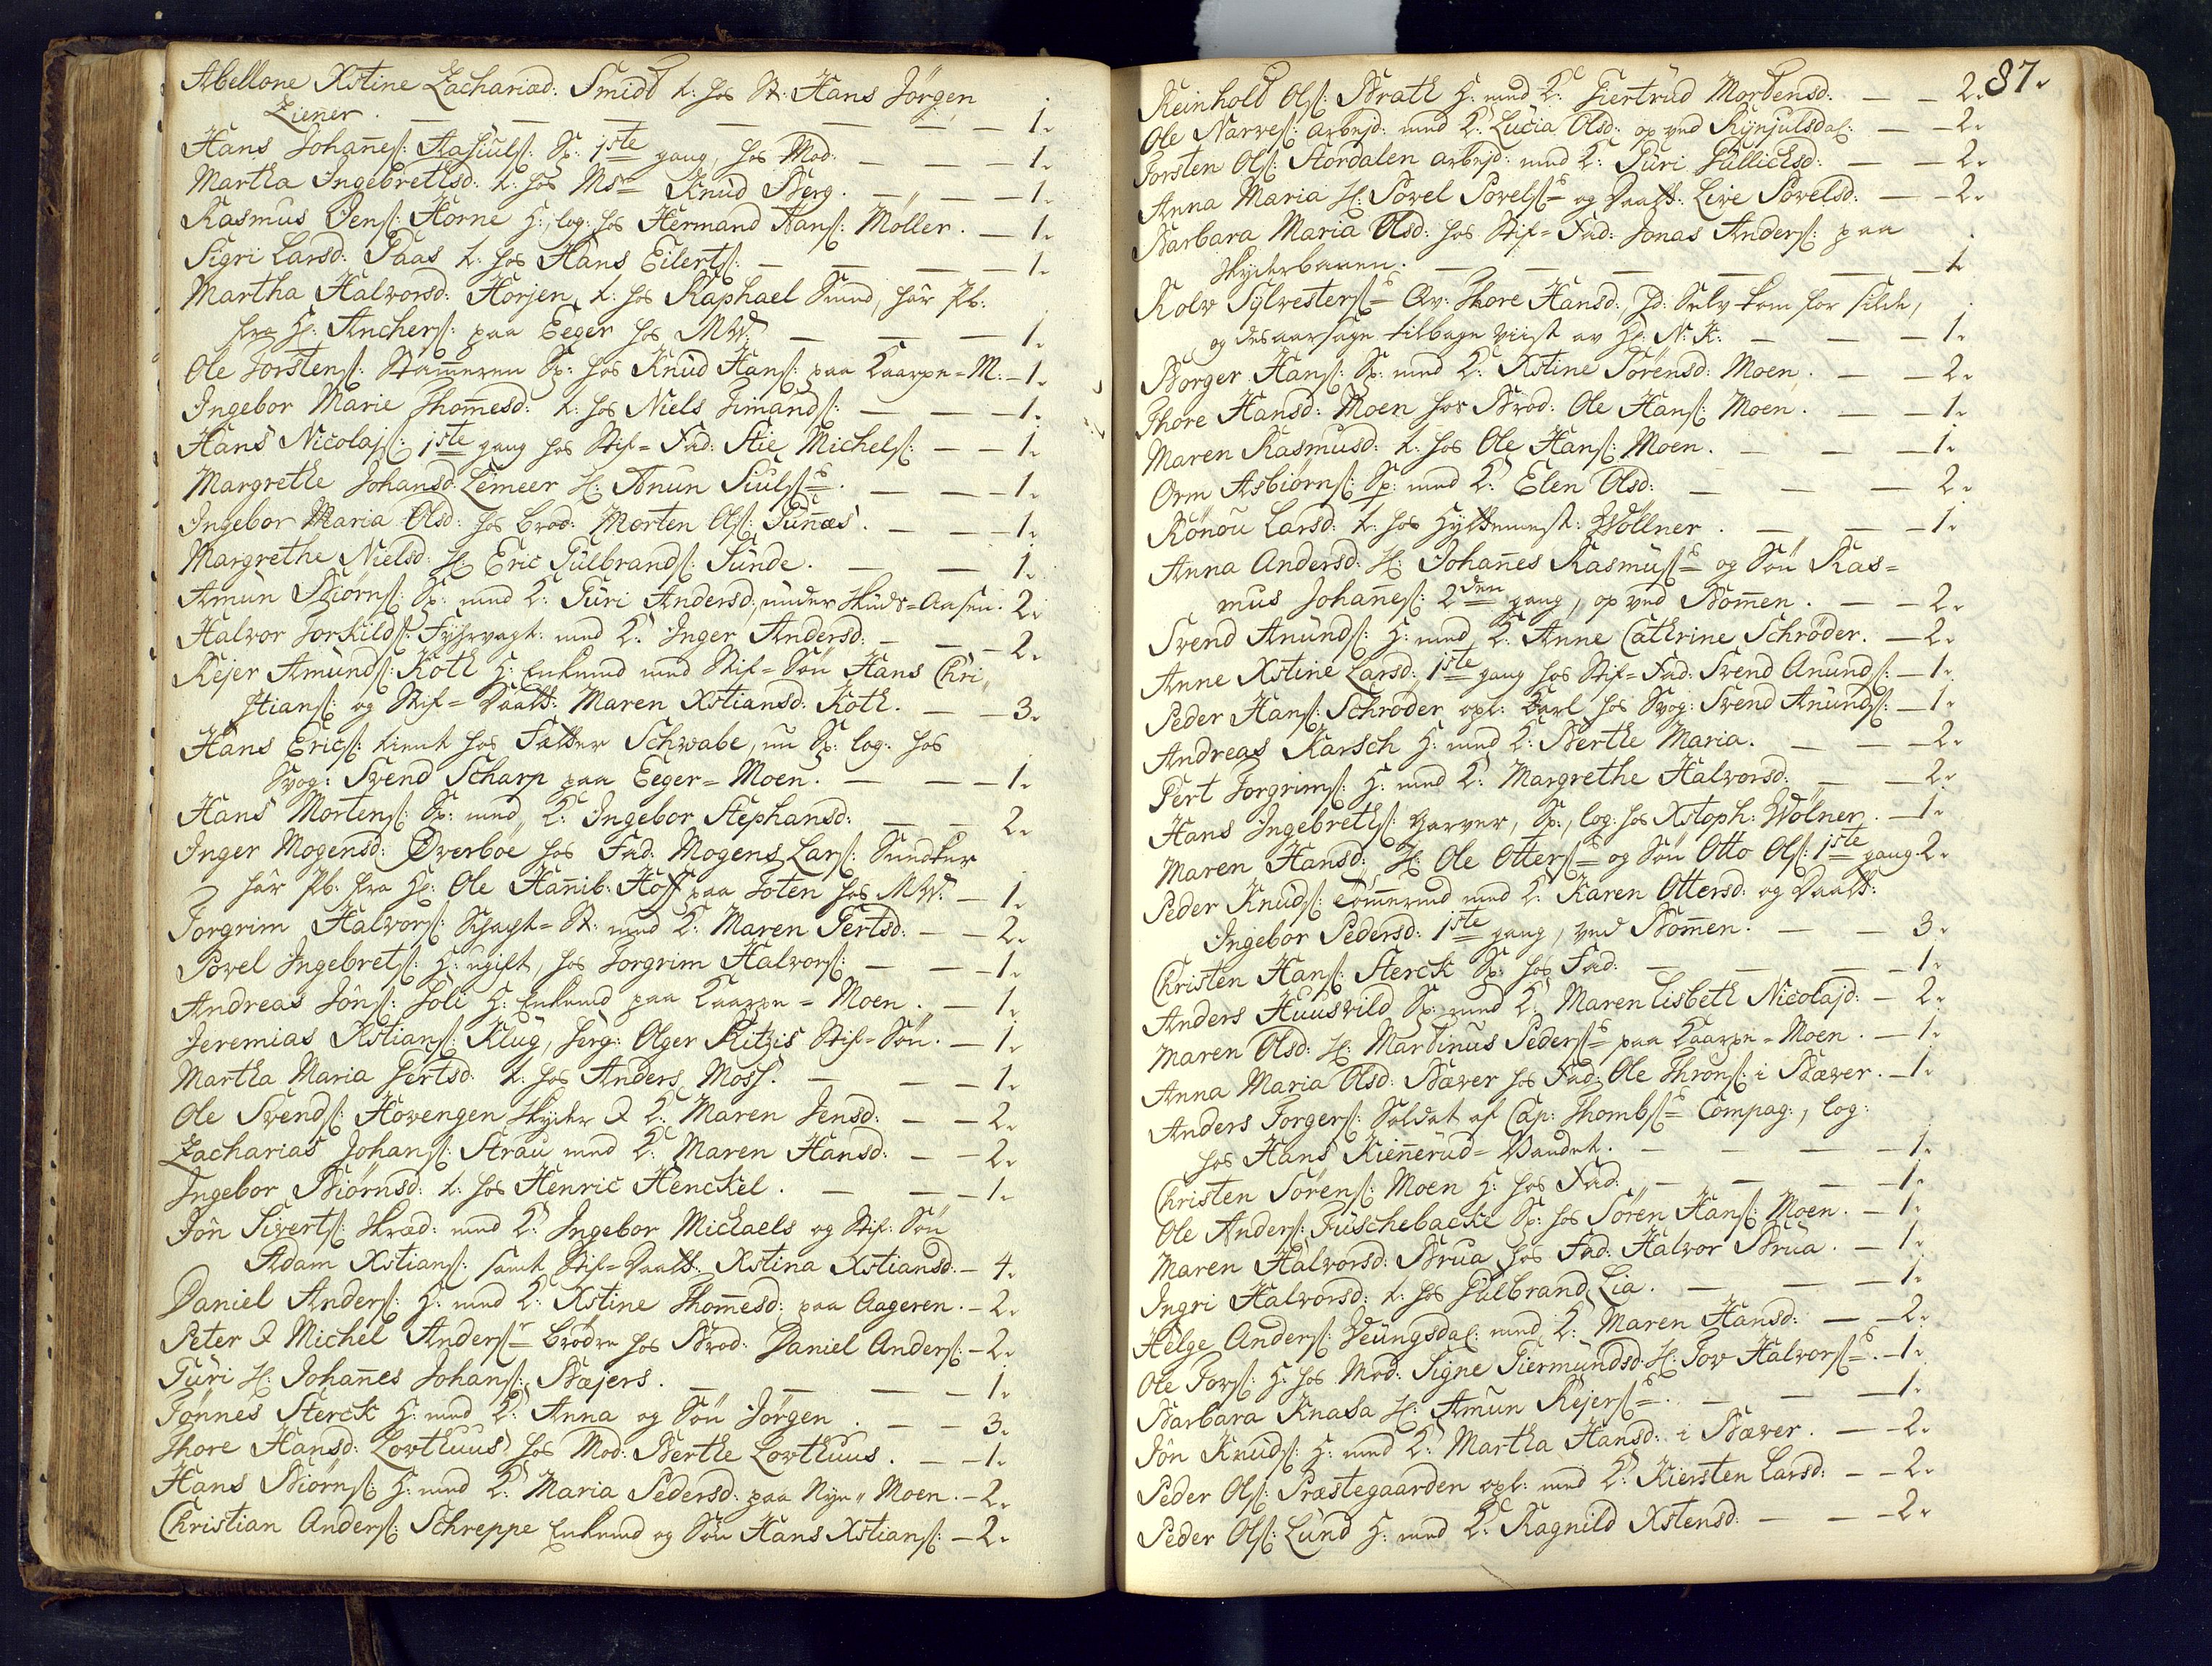 Abellone Xstine Zachariæd: Smidt t: hos St: Hans Jörgen
Ziener. — — — — — — 1.
Hans Johañes: Aasiuls: Sp: 1ste gang, hos Mod: — — — 1.
Martha Ingebrethsd: t: hos Msr Knud Berg. — — — 1.
Rasmus Jens: Horne H:, log: hos Hermand Hans: Möller. — 1.
Sigri Larsd: Paas t: hos Hans Eilerts: — — — — 1.
Martha Halvorsd: Horjen, t: hos Raphael Smed, hâr Pb:
fra Hr: Anchers: paa Eeger hos MW: — — — 1.
Ole Torstens: Stam̃eren Sp: hos Knud Hans: paa Kaarpe-M: — 1.
Ingebor Marie Thom̃esd: t: hos Niels Simands: — — 1.
Hans Nicolajs: 1ste gang hos Stif-Fad: Stie Michels: — — 1.
Margrethe Johansd: Lemeer H: Anun Siuls: — — — 1.
Ingebor Maria Olsd: hos brod: Morten Ols: Puñæs. — — — 1.
Margrethe Nielsd: H: Eric Gulbrands: Sunde. — — 1.
Amun Biörns: Sp: med K: Guri Andersd:, under Skuds-Aasen. 2.
Halvor Torkilds: Fyhrvagt: med K: Inger Andersd: — — — 2.
Rejer Amunds: Koth H: Enkemd med Stif-Sön Hans Chri„
stians: og Stif-Daatt: Maren Xstiansd: Koth. — — 3.
Hans Erics: tient hos Fatter Schwabe, nu Sp: log: hos
Svog: Svend Scharp paa Eeger-Moen. — — — 1.
Hans Mortens: Sp: med K: Ingebor Stephansd: — — 2.
Inger Mogensd: Överböe hos Fad: Mogens Lars: Smedker
hâr Pb: fra Hr: Ole Hañib: Hoff paa Toten hos MW: — 1.
Torgrim Halvors: Schacht-St: med K: Maren Gertsd: — — 2.
Povel Ingebrets: H: ugift, hos Torgrim Halvors: — — 1.
Andreas Jöns: Soli H: Enkemd paa Kaarpe-Moen. — 1.
Jeremias Xstians: Klug, Serg: Olger Ritzis Stif-Sön. — 1.
Martha Maria Gertsd: t: hos Anders Moss. — — — 1.
Ole Svends: Hovengen Skyder & K: Maren Jensd: — — 2.
Zacharias Johans: Strau med K: Maren Hansd: — — 2.
Ingebor Biörnsd: t: hos Henric Henckel. — — — 1.
Jön Siverts: Skræd: med K: Ingebor Michaels og Stif: Sön
Adam Xstians: samt Stif-Daatt: Xstina Xstiansd. — 4.
Daniel Anders: H: med K: Xstine Thom̃esd: paa Aageren. — 2.
Peter & Michel Anders: brödre hos Brod: Daniel Anders: — 2.
Guri H: Johañes Johans: Bæjers. — — — — 1.
Tönnes Sterck H: med K: Anna og Sön Jörgen. — — 3.
Thore Hansd: Lovthuus hos Mod: Berthe Lovthuus. — — 1.
Hans Biörns: H: med K: Maria Pedersd: paa Nye-Moen. — 2.
Christian Anders: Schreppe Enkemd og Sön Hans Xstians: — 2.
87.
Reinhold Ols: Brath H: med K: Giertrud Mortensd: — — 2.
Ole Narves: arbejd: med K: Lucia Olsd: op ved Kynjulsdal: — — 2.
Torsten Ols: Stordalen arbejd: med K: Guri Gullicksd: — — 2.
Anna Maria H: Povel Povels: og Daatt: Live Povelsd: — — 2.
Barbara Maria Olsd: hos Stif-Fad: Jonas Anders: paa
Skyderbanen. — — — — — 1.
Rolv Sylvesters: Qv: Thore Hansd: Hd: Selv kom for silde,
og desaarsage tilbage viist av Hr: N: K: — — — 1.
Borger Hans: Sp: med K: Xstine Sörensd: Moen. — — 2.
Thore Hansd: Moen hos Brod: Ole Hans: Moen. — — 1.
Maren Rasmusd: t: hos Ole Hans: Moen. — — — 1.
Orm Asbiörns: Sp: med K: Elen Olsd: — — — 2.
Rönou Larsd: t: hos Hyttemest: Wöllner. — — — 1.
Anna Andersd: H: Johañes Rasmus: og Sön Ras-
mus Johañes: 2den gang, op ved Bom̃en. — — 2.
Svend Anunds: H: med K: Anne Cathrine Schröder. — 2.
Anne Xstine Larsd: 1ste gang hos Stif-Fad: Svend Anunds: — 1.
Peder Hans: Schröder opl: Karl hos Svog: Svend Anunds: — 1.
Andreas Karsch H: med K: Berthe Maria. — — — 2.
Pert Torgrims: H: med K: Margrethe Halvorsd: — — 2.
Hans Ingebreths: Garver, Sp:, log: hos Xstoph: Wölner. — 1.
Maren Hansd: H: Ole Otters: og Sön Otto Ols: 1ste gang. 2.
Peder Knuds: Töm̃ermd med K: Karen Ottersd: og Daatt:
Ingebor Pedersd: 1ste gang, ved Bom̃en. — — 3.
Christen Hans: Sterck Sp: hos Fad: — — — 1.
Anders Huusvild Sp: med K: Maren Lisbeth Nicolajd: — 2.
Maren Olsd: H: Mardinus Peders: paa Kaarpe-Moen. — 1.
Anna Maria Olsd: Bæver hos Fad: Ole Throns: i Bæver. — 1.
Anders Torgers: Soldat af Cap: Thombs: Compag:, log:
hos Hans Kieñerud-Vandet. — — — — 1.
Christen Sörens: Moen H: hos Fad: — — — 1.
Ole Anders: Fuschebacke Sp: hos Sören Hans: Moen. — 1.
Maren Halvorsd: Brua hos Fad: Halvor Brua. — 1.
Ingri Halvorsd: t: hos Gulbrand Lia. — — — 1.
Helge Anders: Jeungsdal: med K: Maren Hansd: — 2.
Ole Tors: H: hos Mod: Signe Giermundsd: H: Tov Halvors: — 1.
Barbara Knasa H: Amun Rejers: — — — 1.
Jön Knuds: H: med K: Martha Hansd: i Bæver. — 2.
Peder Ols: Præstegaarden opl: med K: Kiersten Larsd: — — 2.
Peder Ols: Lund H: med K: Ragnild Xstensd: — — 2.